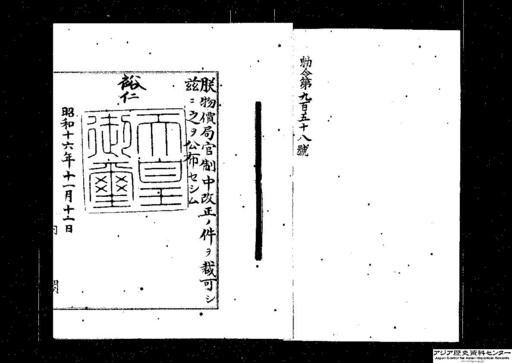 勅令第九百五十八號
朕物價局官制中改正ノ件ヲ裁可シ
茲ニ之ヲ公布セシム
裕仁
天皇御璽
昭和十六年十一月十二日
アジア歴史資料センター
Japan Center for Asian Historical Records